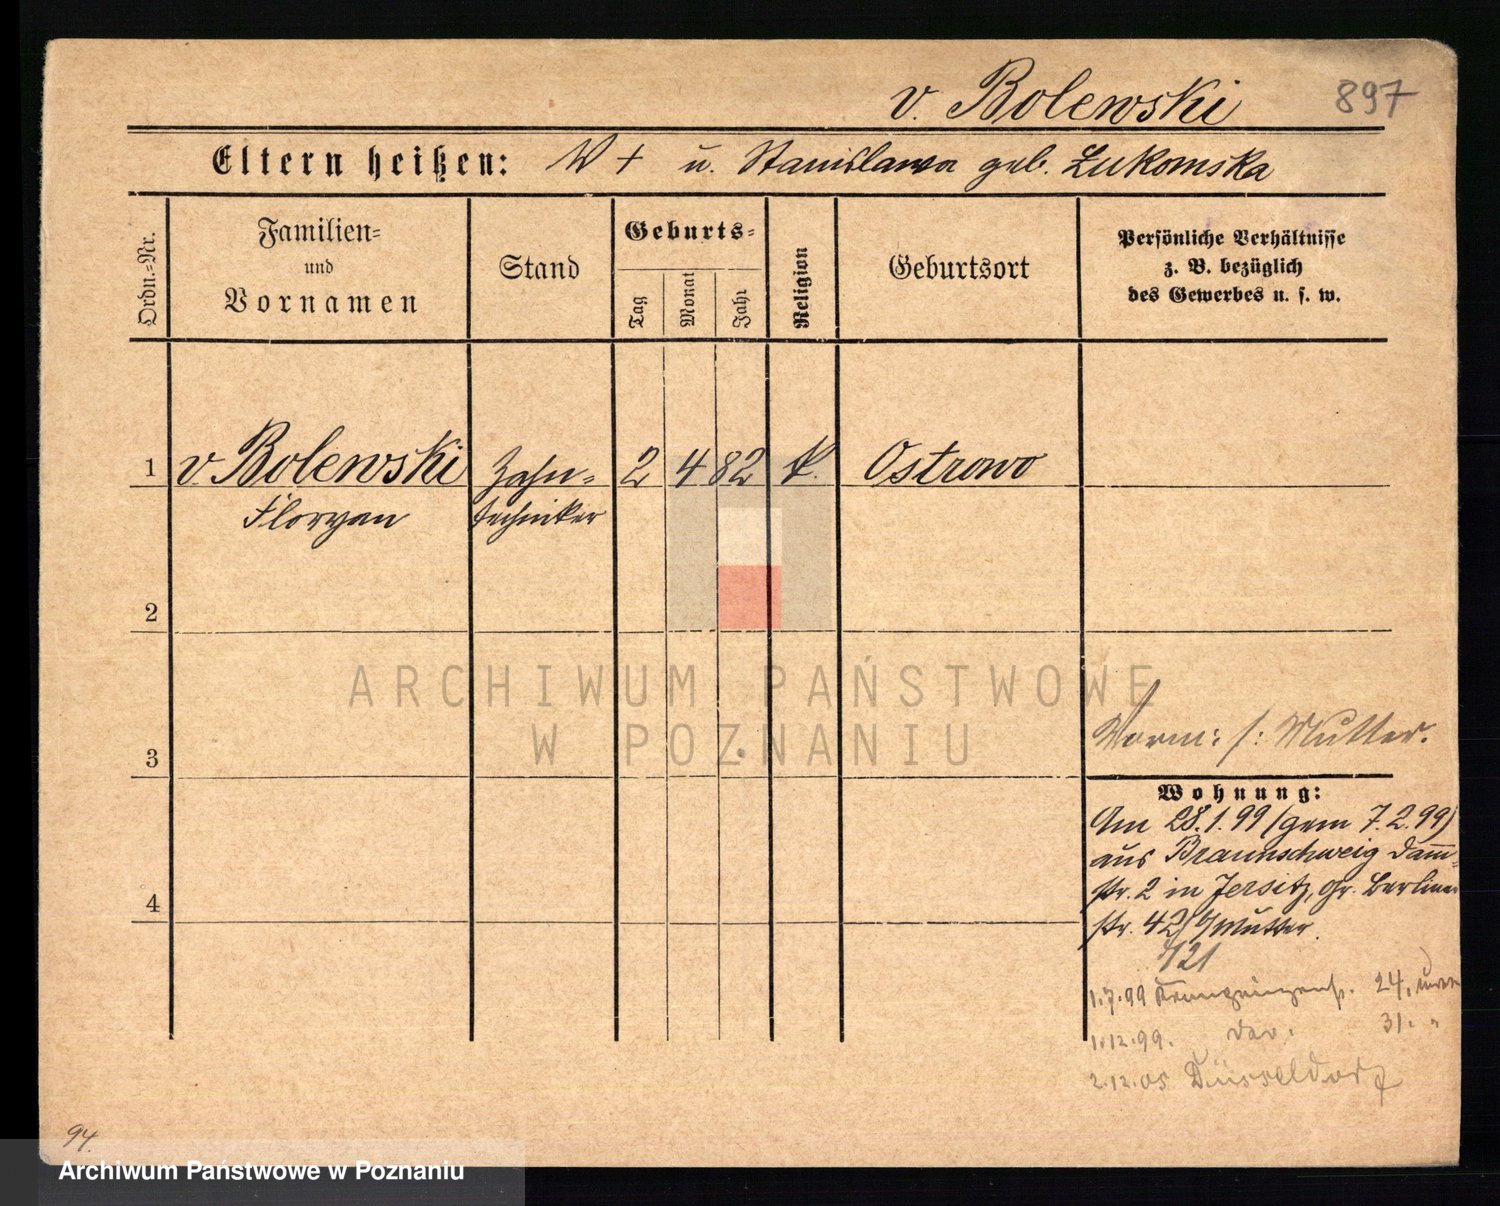 v. Bolewski 897
Eltern heißen: W + u. Stanislawa geb. Lukomska
Ordn.=Nr.
Familien=
und
Vornamen
Stand
Geburts=
Tag
Monat
Jahr
Religion
Geburtsort
Persönliche Verhältnisse
z. B. bezüglich
des Gewerbes u. s. w.
1 v. Bolewski Zahn= 2 4 82 k. Ostrowo
Floryan techniker
2
ARCHIWUM PAŃSTWOWE
W POZNANIU
Vorm: s: Mutter.
3
Wohnung:
Am 28.1.99 (gem 7.2.99)
aus Braunschweig Damm=
str. 2 in Jersitz, Gr. Berliner
4
str. 42 b/Mutter.
1.7.99 24,
1.12.99. 31. "
2.12.05 Düsseldorf
94.
Archiwum Państwowe w Poznaniu